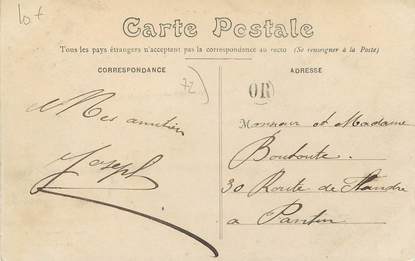 lot
Carte Postale
Tous les pays étrangers n'acceptent pas la correspondance au recto (Se renseigner à la Poste)
CORRESPONDANCE
72
Mes amitiés
Joseph
ADRESSE
OR
Monsieur et Madame
Boutoute.
30 Route de Flandre
a Pantin